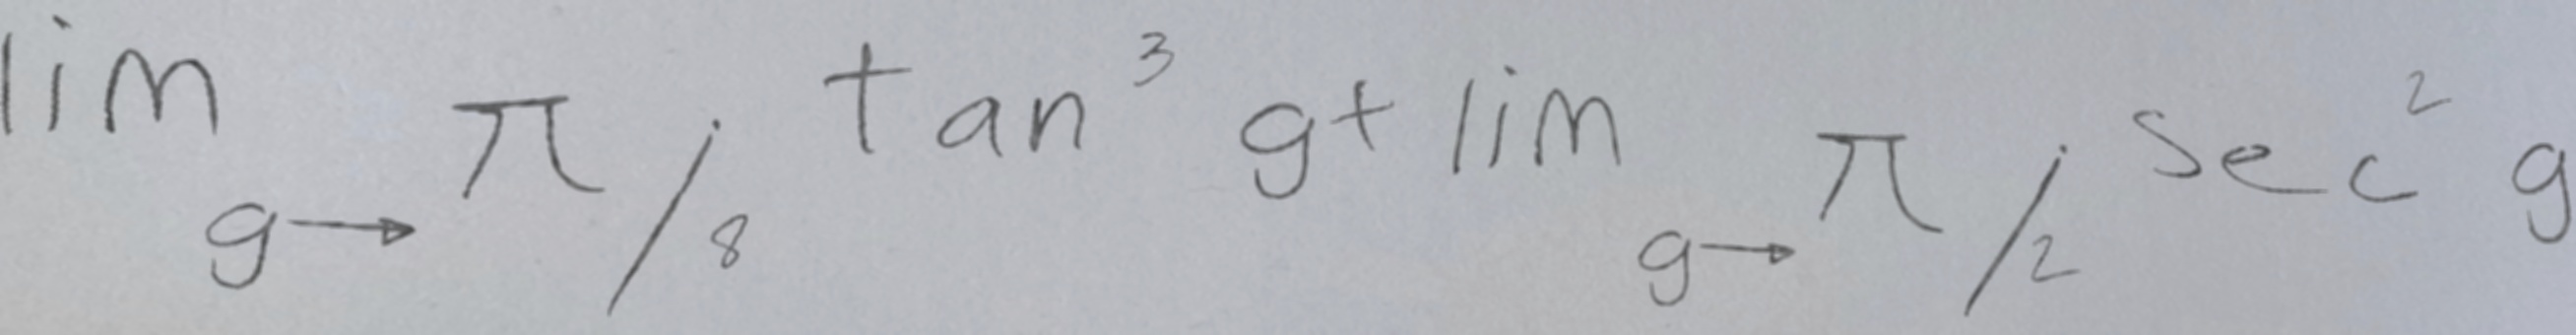 lim g→π/8 tan³ g + lim g→π/2 sec² g